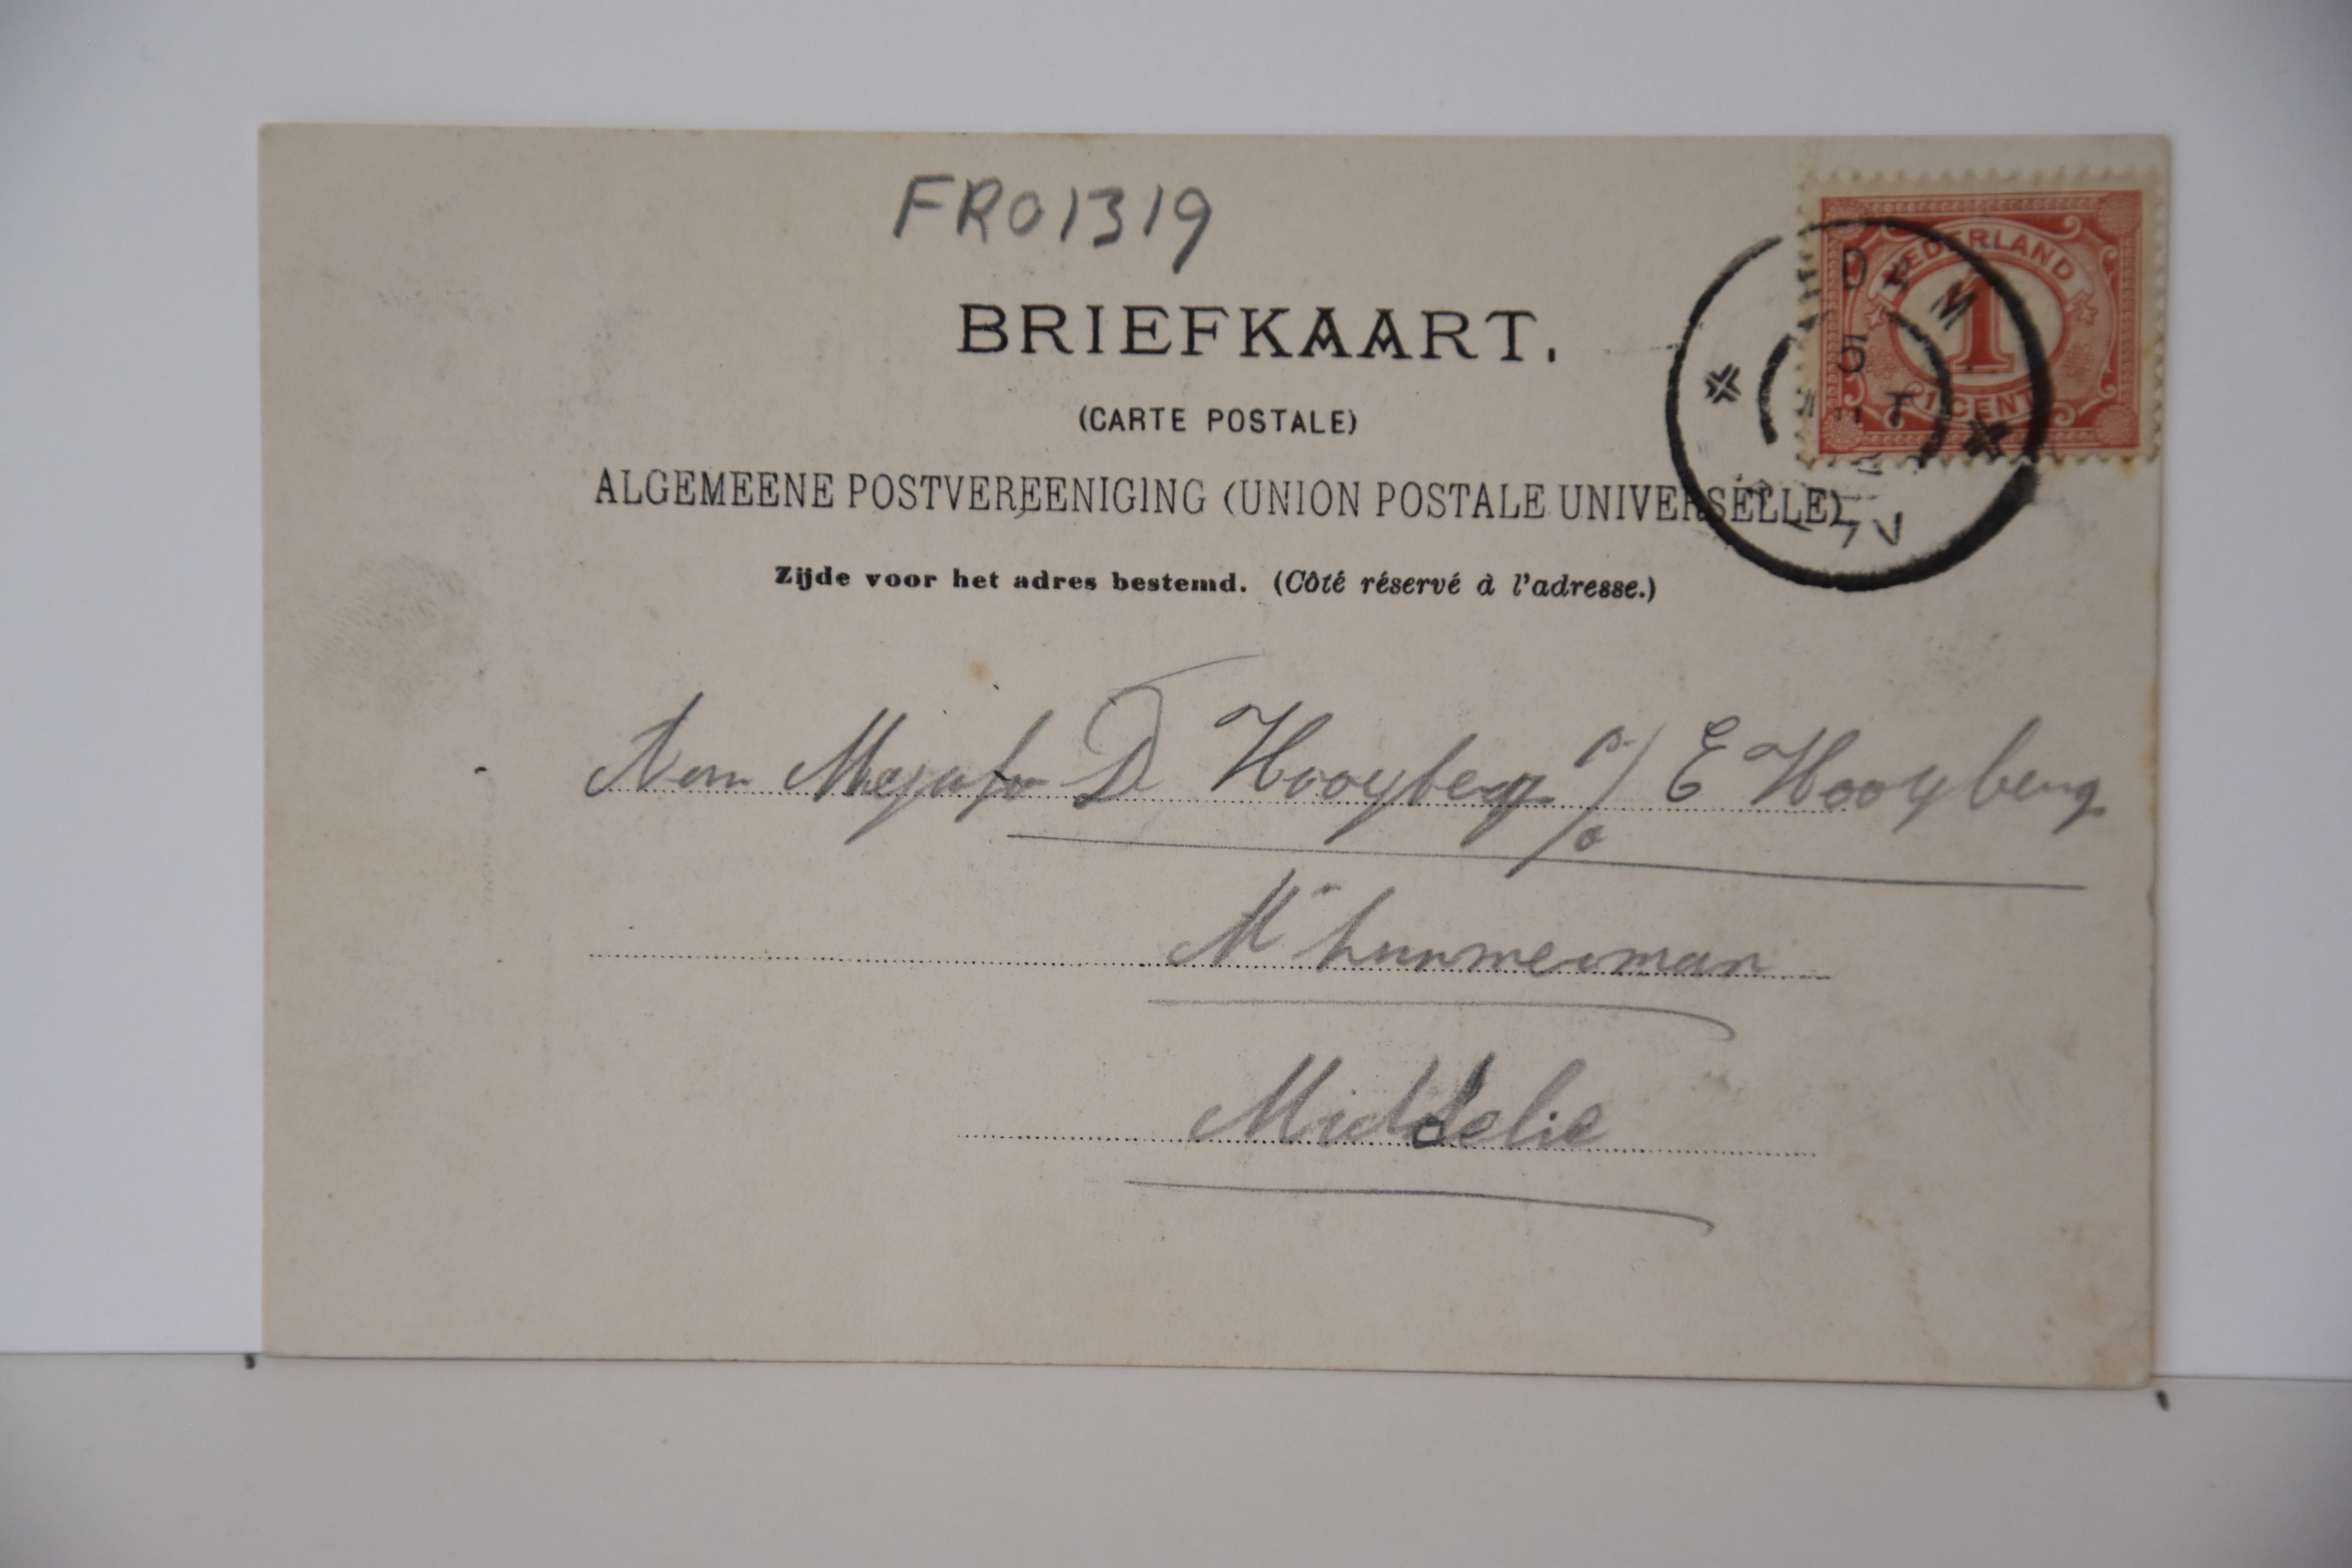 FRO1319
BRIEFKAART.
(CARTE POSTALE)
ALGEMEENE POSTVEREENIGING (UNION POSTALE UNIVERSELLE)
Zijde voor het adres bestemd. (Côté réservé à l'adresse.)
NEDERLAND
1
1 CENT
DAM
5
D Hooyberg p/o E Hooyberg
Middelie